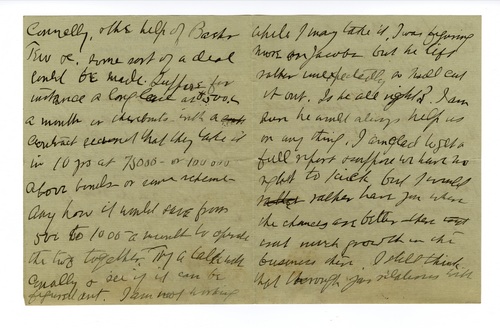 Connelly, & the help of
some sort of a deal
could be made. Suppose for
instance a long lease at $500.
a month or thereabouts - with a
contract that they take it
in 10 yrs at 75000 - or 100000
above bonds - or some scheme
Any how it would save from
500 to 1000 a month to operate
the two together. Try a talk with
Connelly & see if it can be
figured out. I am not working
while I may take it. I was figuring
more on Jacobs but he left
rather unexpectedly, so had cut
it out. Is he all right? I am
sure he would always help us
on any thing. I am glad to get a
full report & suppose we have no
right to kick but I would
rather have you where
the chances are better there
not much growth in the
business there. I still think
that through your relations with